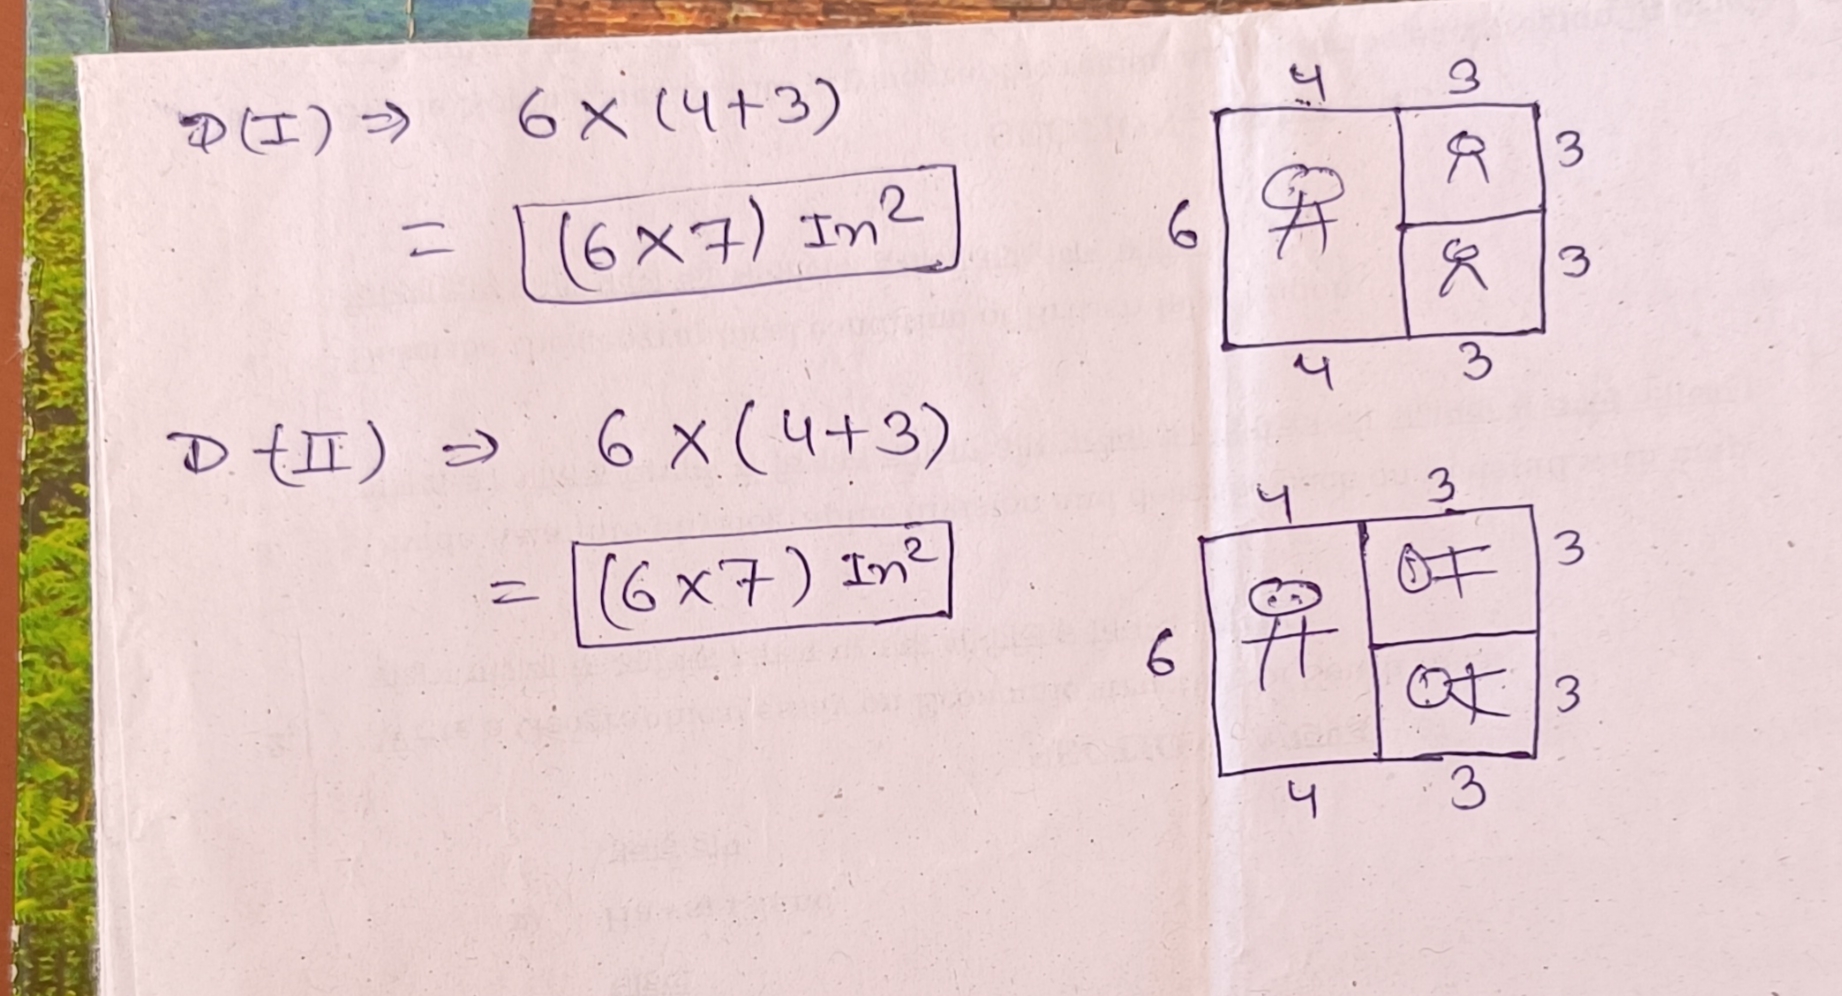 D(I) ⇒ 6 × (4+3)
= (6×7) In²
4 3
3
6
3
4 3
D.(II) ⇒ 6 × (4+3)
= (6×7) In²
4 3
3
6
3
4 3